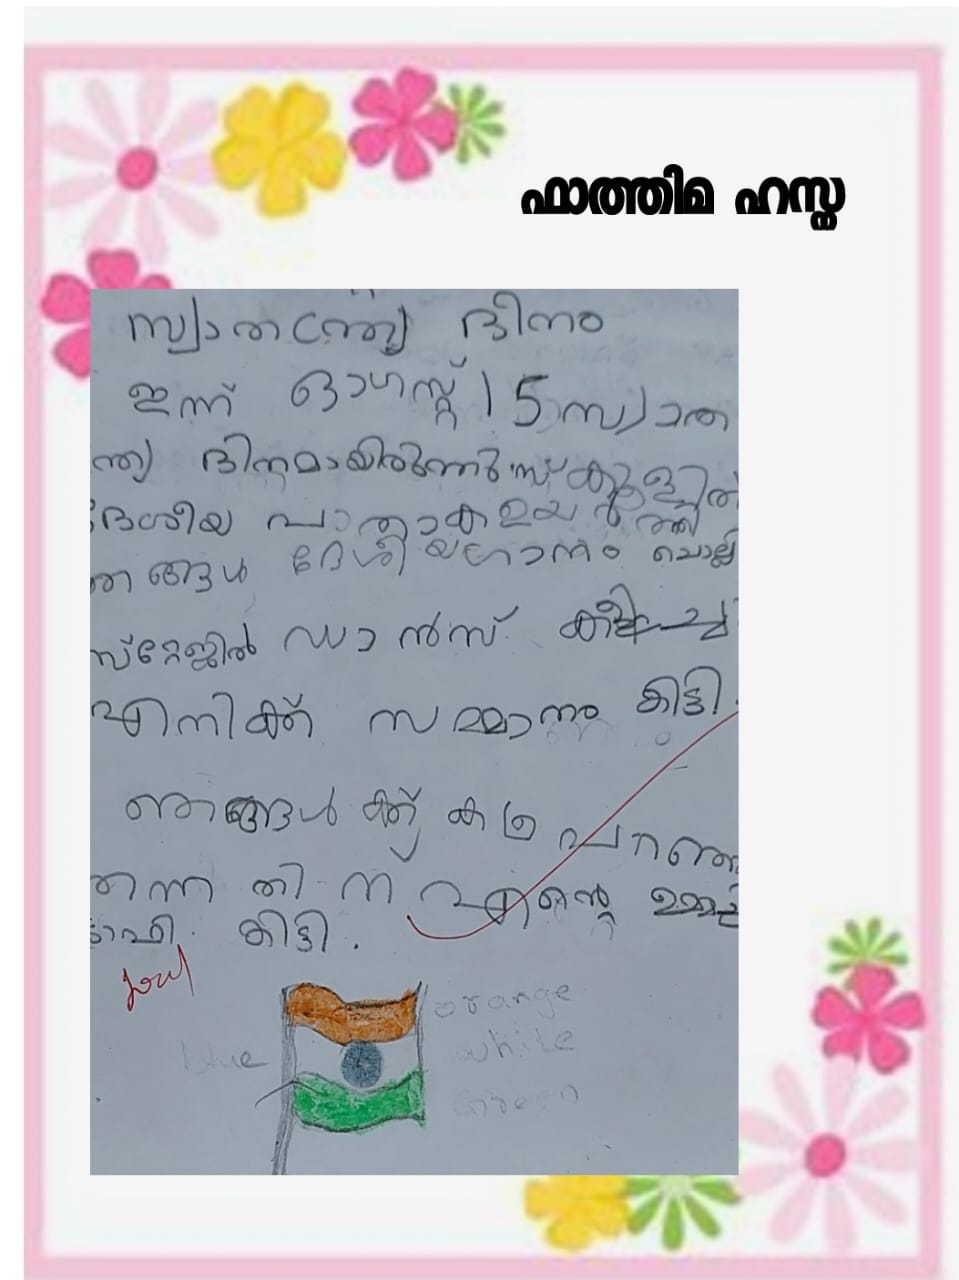 ഫാത്തിമ ഹസ്ന
സ്വാതന്ത്ര്യ ദിനം
ഇന്ന് ഓഗസ്റ്റ് 15 സ്വാത
ന്ത്യ ദിനമായിരുന്നു സ്കൂളിൽ
ദേശീയ പാതാക ഉയർത്തി
ഞങ്ങൾ ദേശീയഗാനം ചൊല്ലി
സ്റ്റേജിൽ ഡാൻസ് കളിച്ചു
എനിക്ക് സമ്മാനം കിട്ടി.
ഞങ്ങൾക്ക് കഥ പറഞ്ഞ
തന്ന തി ന് എന്റെ
കിട്ടി.
orange
blue white
Green